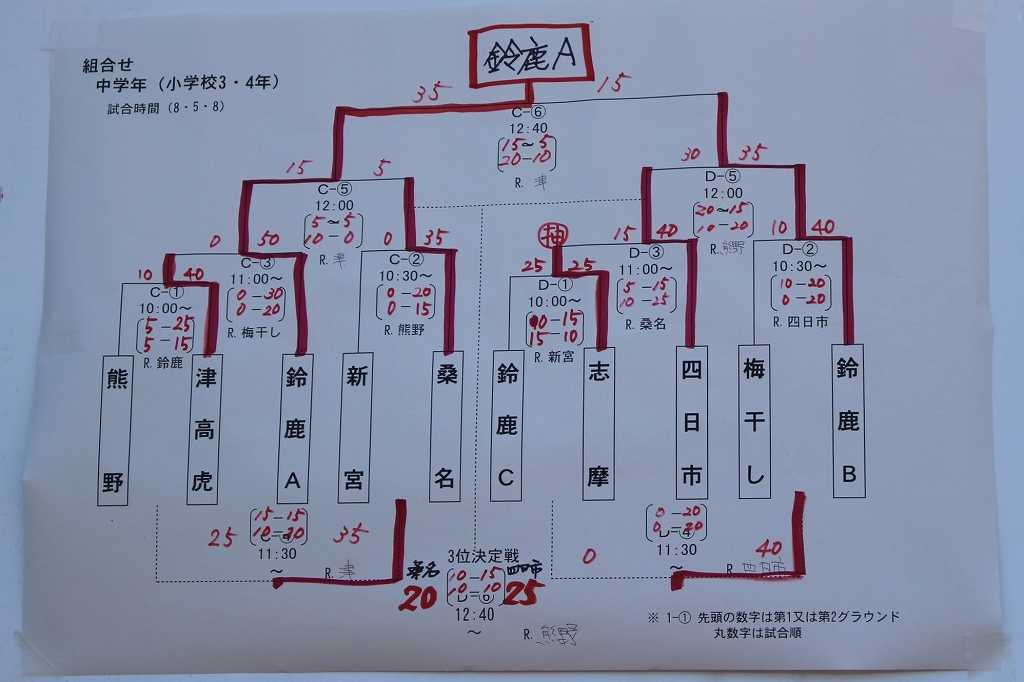 鈴鹿A
組合せ
中学年（小学校3・4年）
試合時間（8・5・8）
35 15
C-⑥
12:40
15～5
20-10
R. 津
15 5
C-⑤
12:00
5～5
10-0
R. 津
30 35
D-⑤
12:00
20～15
10-20
R. 熊野
0 50
C-③
11:00～
0-30
0-20
R. 梅干し
0 35
C-②
10:30～
0-20
0-15
R. 熊野
抽
15 40
D-③
11:00～
5-15
10-25
R. 桑名
10 40
D-②
10:30～
10-20
0-20
R. 四日市
10 40
C-①
10:00～
5-25
5-15
R. 鈴鹿
25 25
D-①
10:00～
10-15
15-10
R. 新宮
熊野
津高虎
鈴鹿A
新宮
桑名
鈴鹿C
志摩
四日市
梅干し
鈴鹿B
25 35
15-15
10-20
11:30
～
R. 津
3位決定戦
桑名 四日市
20 25
10-15
10-10
12:40
～
R. 熊野
0 40
0-20
0-20
11:30
～
R. 四日市
※ 1-① 先頭の数字は第1又は第2グラウンド
丸数字は試合順